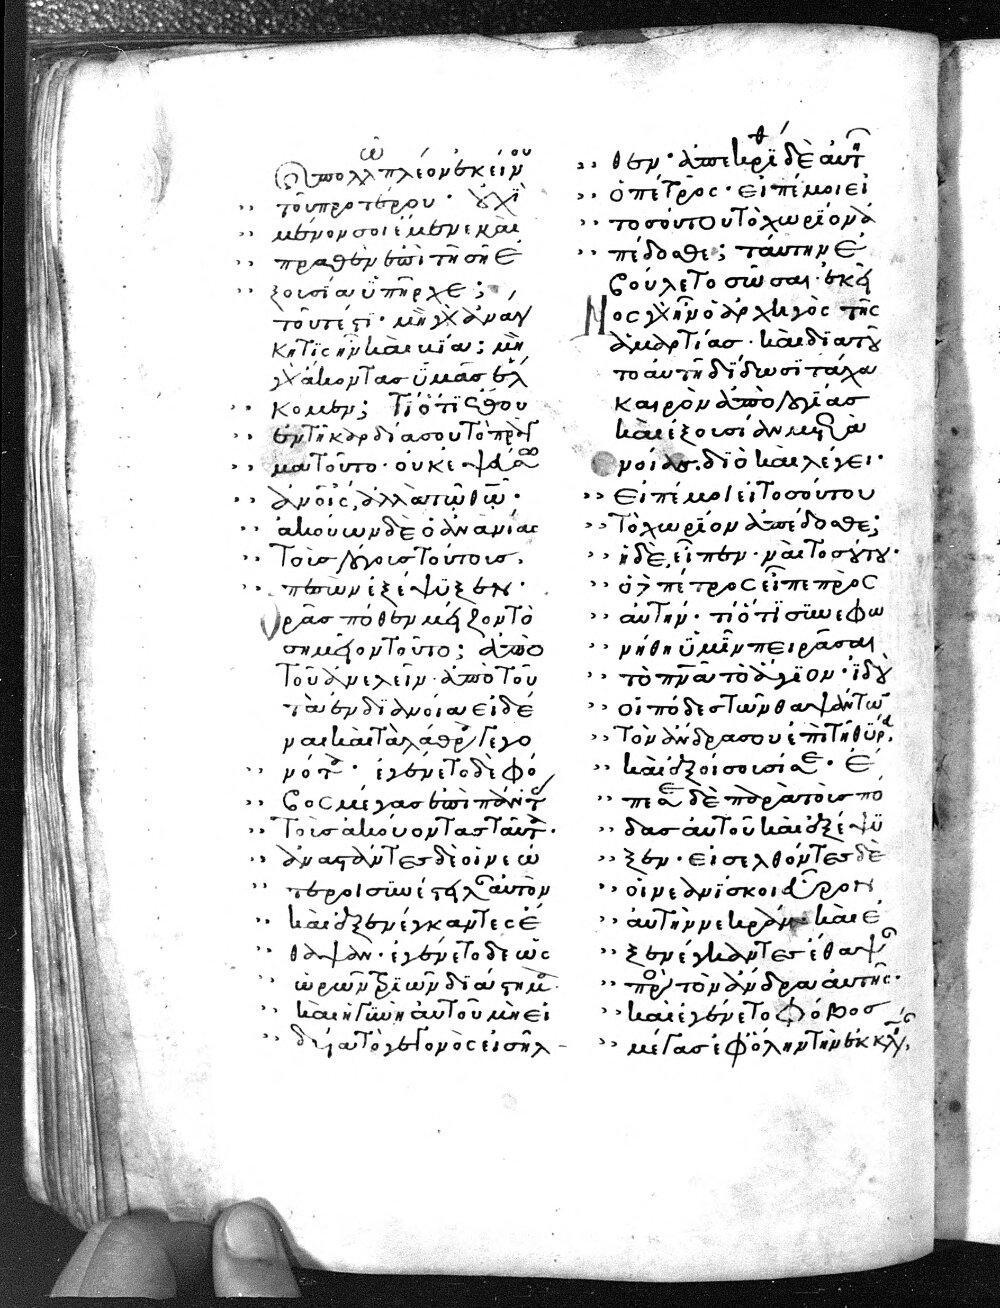 πολλῶ πλέον ἐκείνου
τοῦ προτέρου· οὐχὶ
μένον σοι ἔμενε καὶ
πραθὲν ἐπὶ τῆ σῆ ἐ
ξουσία ὑπῆρχε;
τουτέστι· μὴ γὰρ ἀναγ
κη τίς ἦν καὶ βία; μὴ
γὰρ ἄκοντας ὑμᾶς ἕλ
κομεν; τί ὅτι ἔθου
ἐν τῆ καρδία σου τὸ πρᾶγ
μα τοῦτο· οὐκ ἐψεύσω
ἀνοις, ἀλλὰ τῶ θῶ·
ἀκούων δὲ ὁ ἀνανίας
τοὺς λόγους τούτους,
πεσὼν ἐξέψυξεν·
ὁρᾶς πόθεν μεῖζον τὸ
σημεῖον τοῦτο; ἀπὸ
τοῦ ἀνελεῖν· ἀπὸ τοῦ
τὰ ἐν διανοία εἰδέ
ναι καὶ τὰ λάθρα γεγο
νότα· ἐγένετο δὲ φό
βος μέγας ἐπὶ πάντας
τοὺς ἀκούοντας ταῦτα·
ἀναστάντες δὲ οἱ νεώ
τεροι συνέστειλαν αὐτὸν
καὶ ἐξενέγκαντες ἔ
θαψαν· ἐγένετο δὲ ὡς
ὡρῶν τριῶν διάστημα·
καὶ ἡ γυνὴ αὐτοῦ μὴ εἰ
δυῖα τὸ γεγονὸς εἰσῆλ
θεν· ἀπεκρίθη δὲ αὐτῆ
ὁ πέτρος· εἰπέ μοι εἰ
τοσούτου τὸ χωρίον ἀ
πέδοσθε; ταύτην ἐ
βούλετο σῶσαι· ἐκεῖ
νος γὰρ ἦν ὁ ἀρχηγὸς τῆς
ἁμαρτίας· καὶ διατοῦ
το αὐτῆ δίδωσι τάχα
καιρὸν ἀπολογίας
καὶ ἐξουσίαν μετα
νοίας. διὸ καὶ λέγει·
εἰπέ μοι εἰ τοσούτου
τὸ χωρίον ἀπέδοσθε;
ἡ δὲ, εἶπεν· ναὶ τοσούτου·
ὁ δὲ πέτρος εἶπε πρὸς
αὐτήν· τί ὅτι συνεφω
νήθη ὑμῖν πειρᾶσαι
τὸ πνα τὸ ἅγιον· ἰδοὺ
οἱ πόδες τῶν θαψάντων
τὸν ἄνδρα σου ἐπὶ τῆ θύρα,
καὶ ἐξοίσουσί σε· ἔ
πεσε δὲ παρὰ τοὺς πό
δας αὐτοῦ καὶ ἐξέψυ
ξεν· εἰσελθόντες δὲ
οἱ νεανίσκοι εὗρον
αὐτὴν νεκρὰν· καὶ ἐ
ξενέγκαντες ἔθαψαν
πρὸς τὸν ἄνδρα αὐτῆς·
καὶ ἐγένετο φόβος
μέγας ἐφ' ὅλην τὴν ἐκκλησίαν,